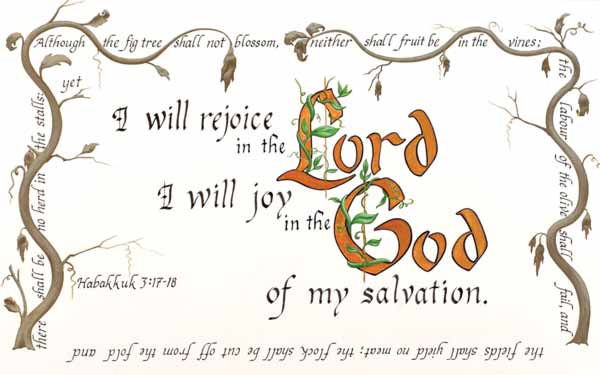 Although the fig tree shall not blossom,
neither shall fruit be in the vines;
the labour of the olive shall fail, and
the fields shall yield no meat; the flock shall be cut off from the fold and
there shall be no herd in the stalls;
yet
I will rejoice
in the Lord
I will joy
in the God
of my salvation.
Habakkuk 3:17-18